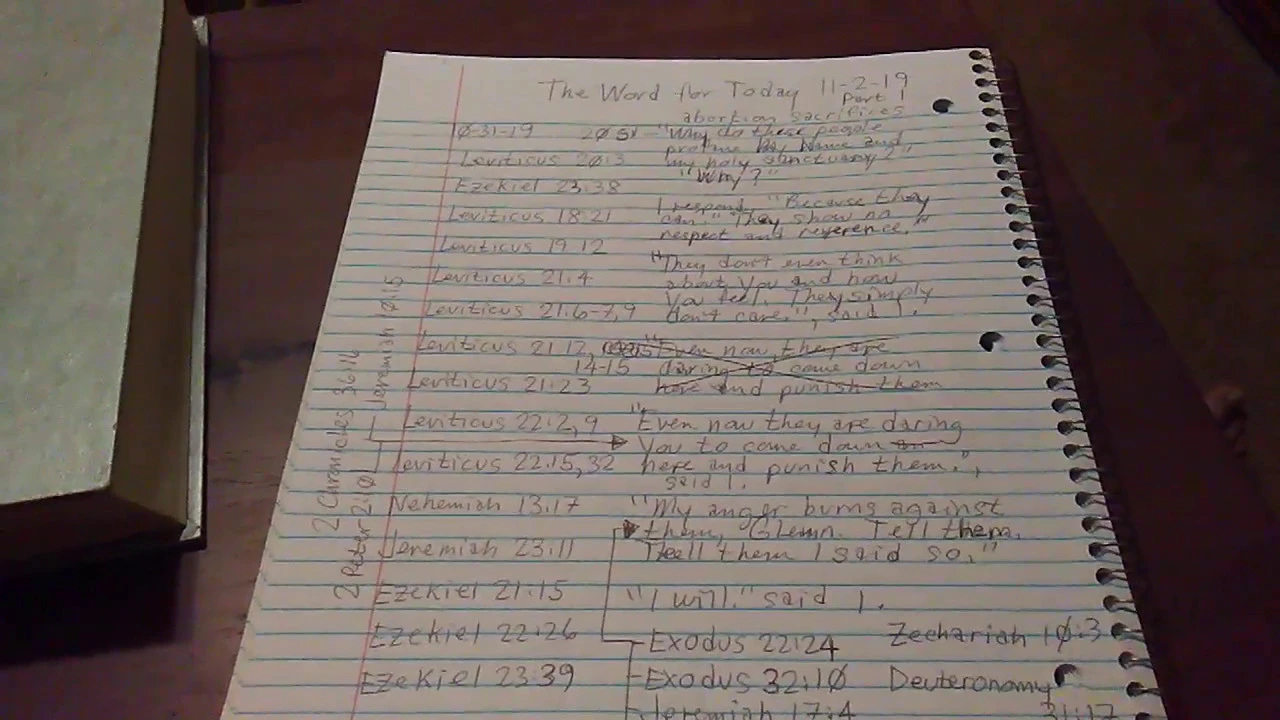 The Word for Today 11-2-19
Part 1
abortion sacrifices
10-31-19 2051 - "Why do these people
profane My Name and
Leviticus 20:3 my holy sanctuary?"
"Why?"
Ezekiel 23:38
I respond, "Because they
Leviticus 18:21 can." "They show no
respect and reverence."
Leviticus 19:12
"They don't even think
Leviticus 21:4 about You and how
You feel. They simply
Leviticus 21:6-7,9 don't care.", said I.
Leviticus 21:12, "Even now, they are
14-15 daring to come down
Leviticus 21:23 here and punish them
Leviticus 22:2,9 "Even now they are daring
You to come down
Leviticus 22:15,32 here and punish them.",
said I.
Nehemiah 13:17 "My anger burns against
them, Glenn. Tell them.
Jeremiah 23:11 Tell them I said so."
Ezekiel 21:15 "I will." said I.
Ezekiel 22:26 Exodus 22:24 Zechariah 10:3
Ezekiel 23:39 Exodus 32:10 Deuteronomy
Jeremiah 17:4 31:17
Jeremiah 10:15
2 Chronicles 36:16
2 Peter 2:10